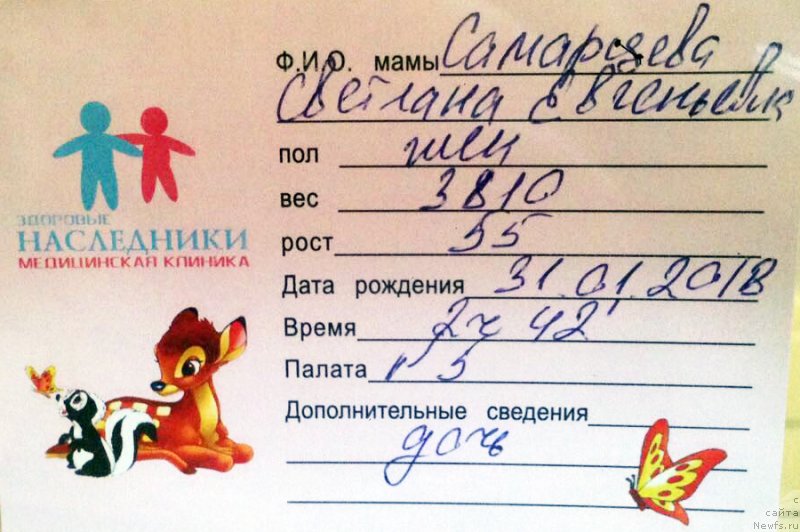 Ф.И.О. мамы Самарцева
Светлана Евгеньевн
ЗДОРОВЫЕ
НАСЛЕДНИКИ
МЕДИЦИНСКАЯ КЛИНИКА
пол жен
вес 3810
рост 55
Дата рождения 31.01.2018
Время 2ч 42'
Палата 5
Дополнительные сведения
дочь
с
сайта
Newfs.ru